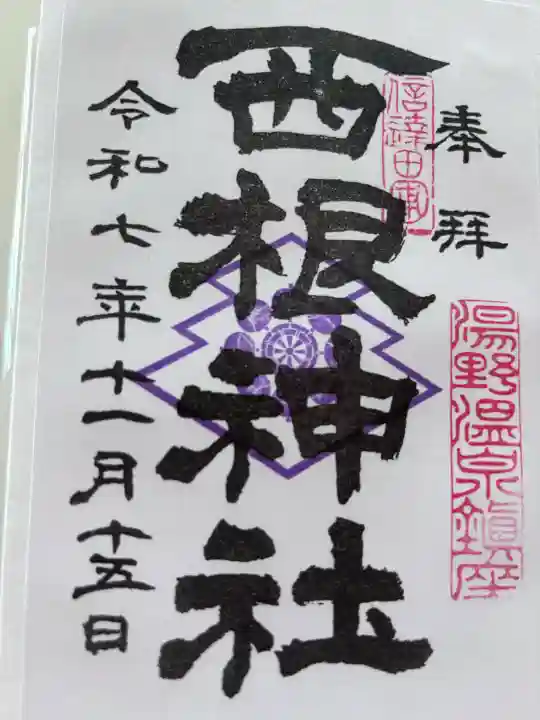 奉拝
信達田東
湯野温泉鎮座
西根神社
令和七年十一月十五日